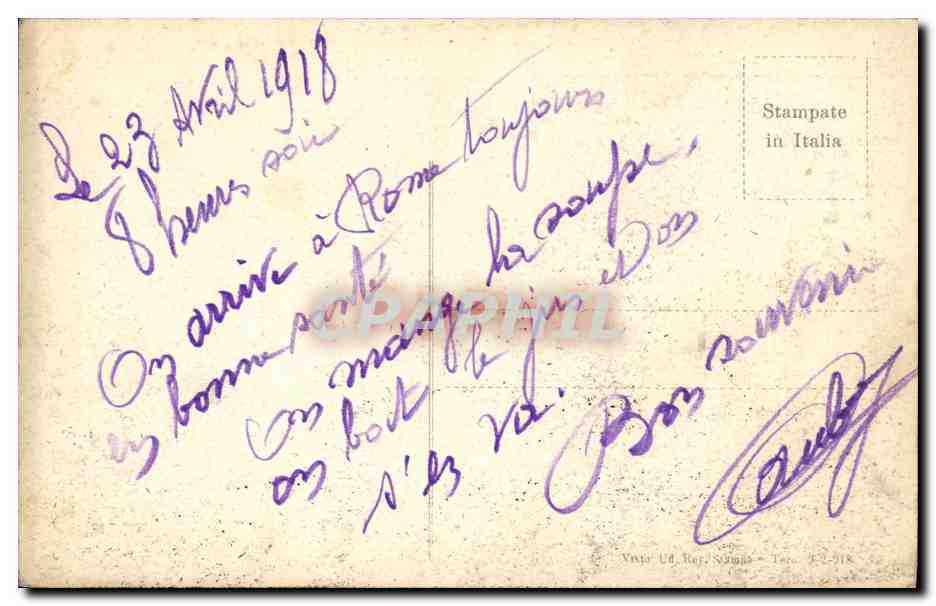 Le 23 Avril 1918
8 heures soir
On arrive à Rome toujours
en bonne santé
On mange la soupe.
on boit le jus et on
s'en va.
Bon souvenir
Stampate
in Italia
CPAPHIL
Visto Uf. Rev. Stampa -